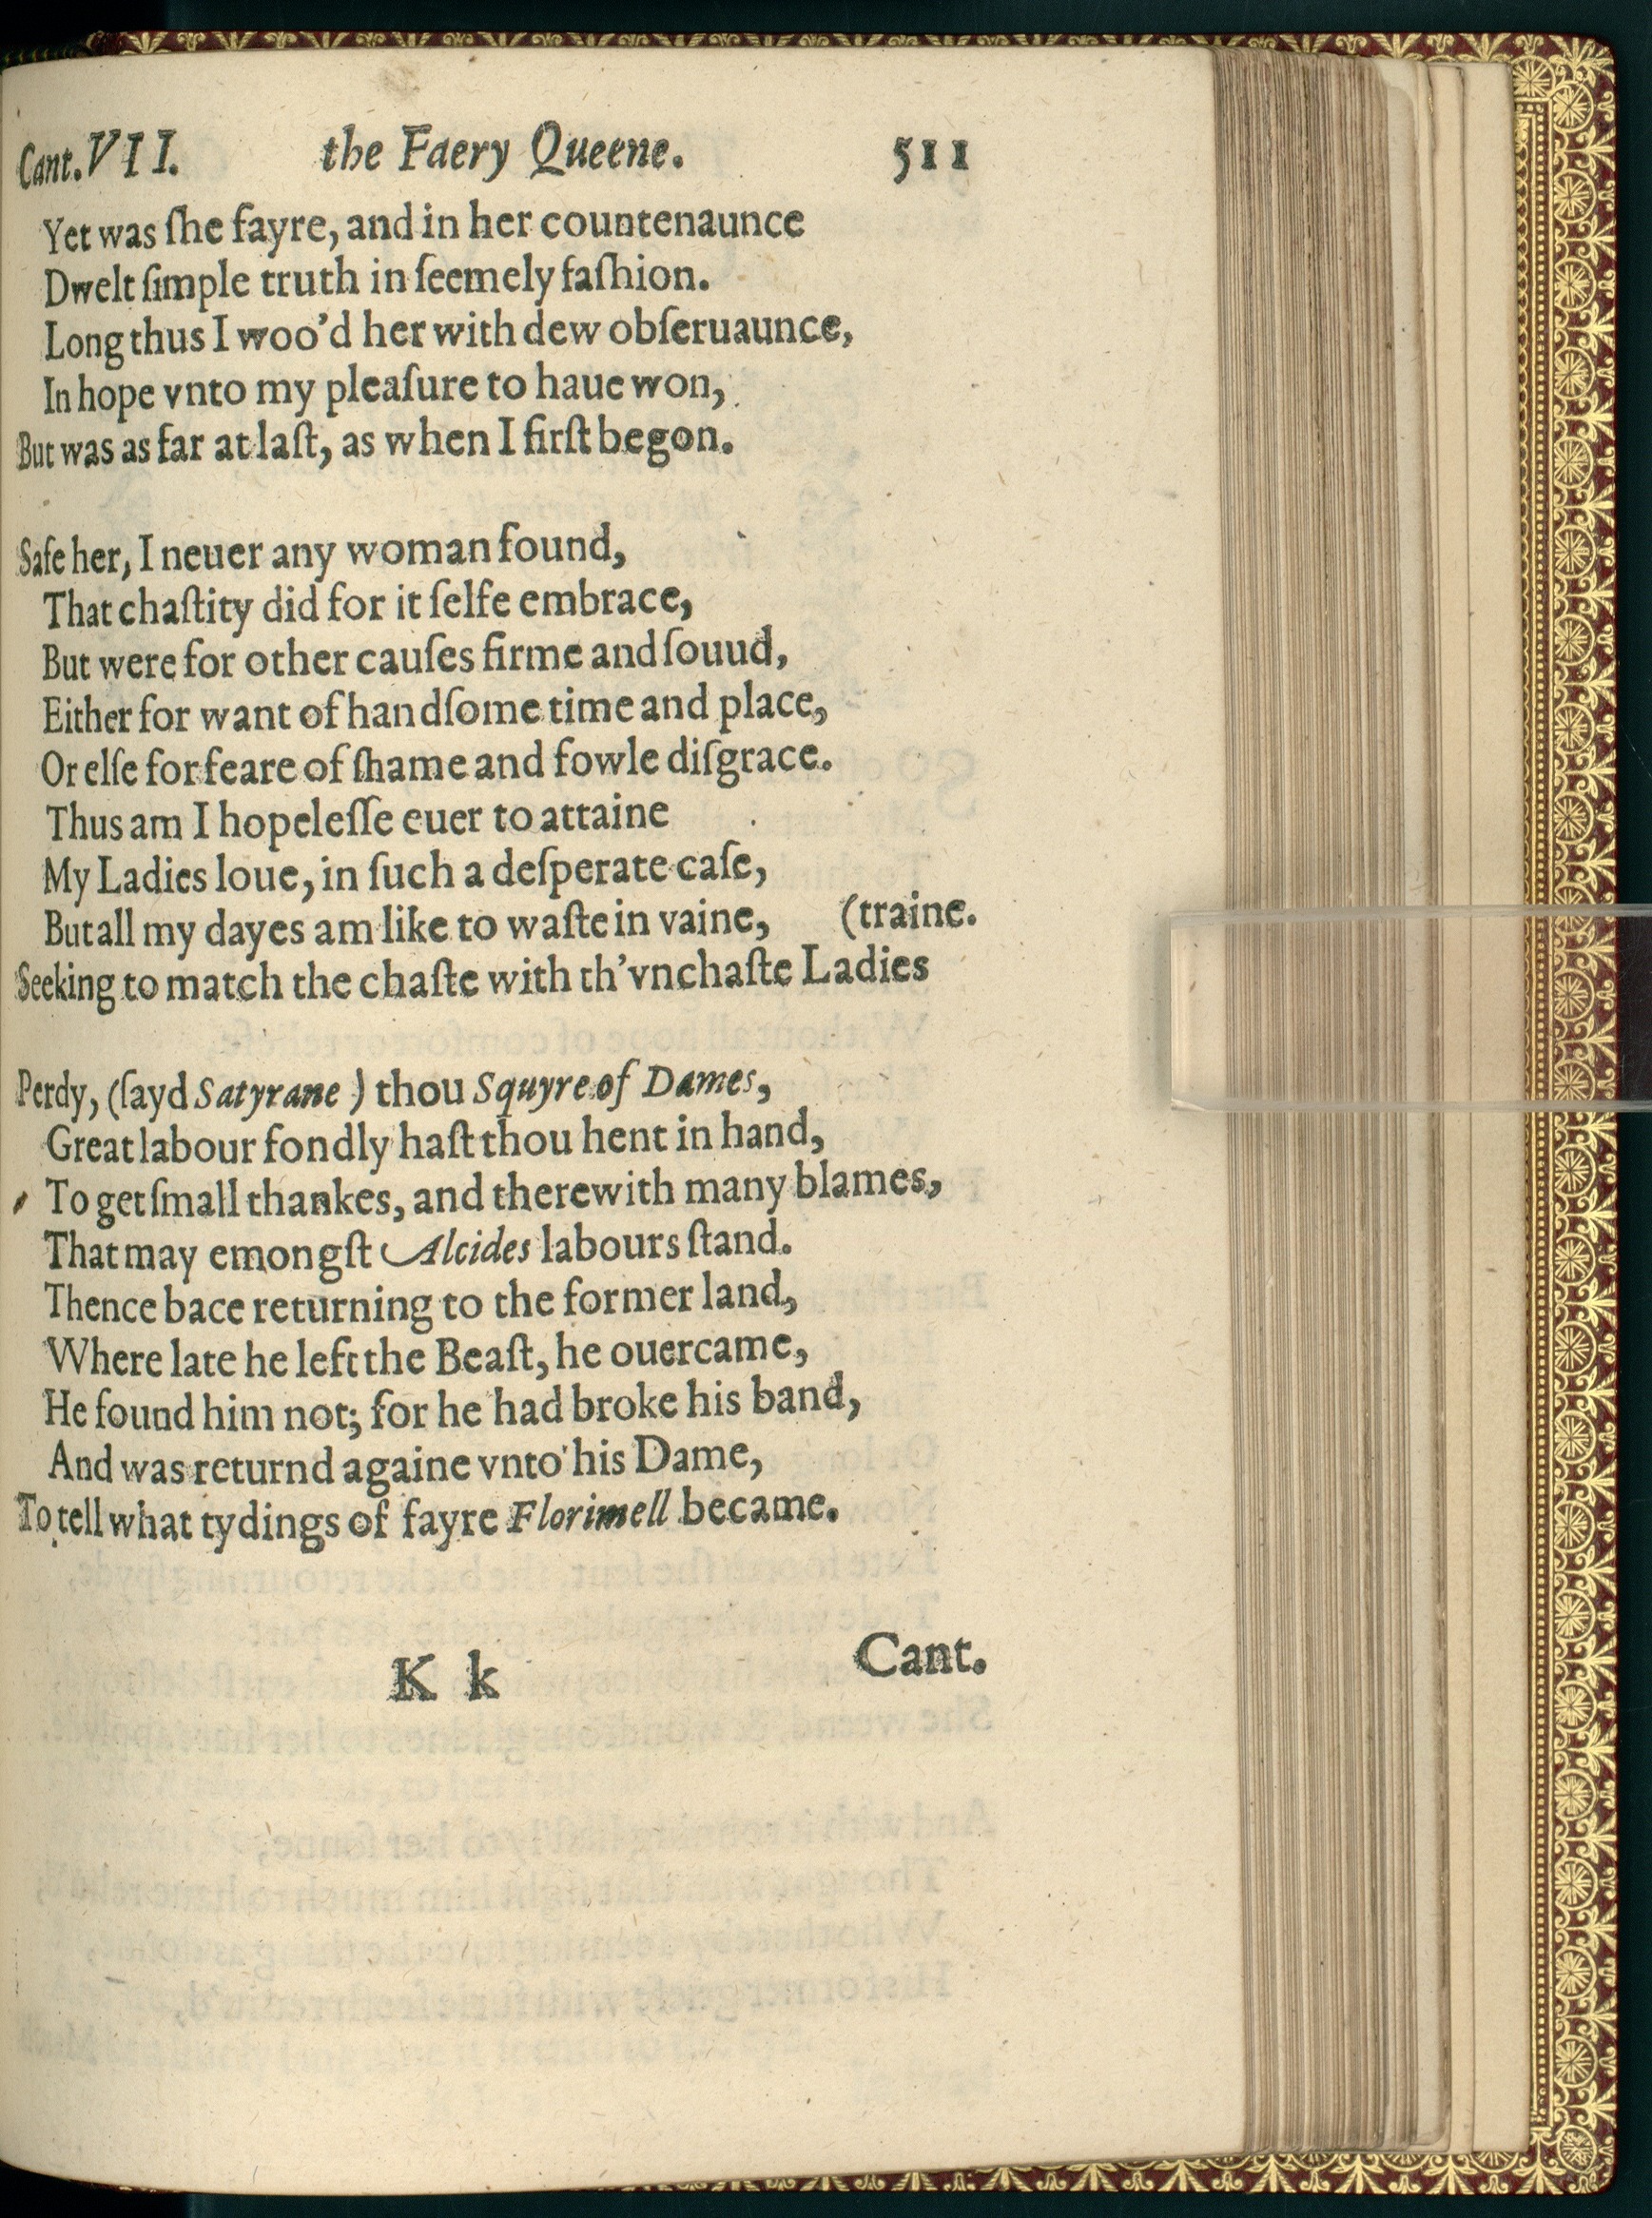 Cant. VII. the Faery Queene. 511
Yet was ſhe fayre, and in her countenaunce
Dwelt ſimple truth in ſeemely faſhion.
Long thus I woo'd her with dew obſeruaunce,
In hope vnto my pleaſure to haue won,
But was as far at laſt, as when I firſt begon.
Safe her, I neuer any woman found,
That chaſtity did for it ſelfe embrace,
But were for other cauſes firme and ſouud,
Either for want of handſome time and place,
Or elſe for feare of ſhame and fowle diſgrace.
Thus am I hopeleſſe euer to attaine
My Ladies loue, in ſuch a deſperate caſe,
But all my dayes am like to waſte in vaine, (traine.
Seeking to match the chaſte with th'vnchaſte Ladies
Perdy, (ſayd Satyrane) thou Squyre of Dames,
Great labour fondly haſt thou hent in hand,
To get ſmall thankes, and therewith many blames,
That may emongſt Alcides labours ſtand.
Thence bace returning to the former land,
Where late he left the Beaſt, he ouercame,
He found him not; for he had broke his band,
And was returnd againe vnto his Dame,
To tell what tydings of fayre Florimell became.
K k Cant.